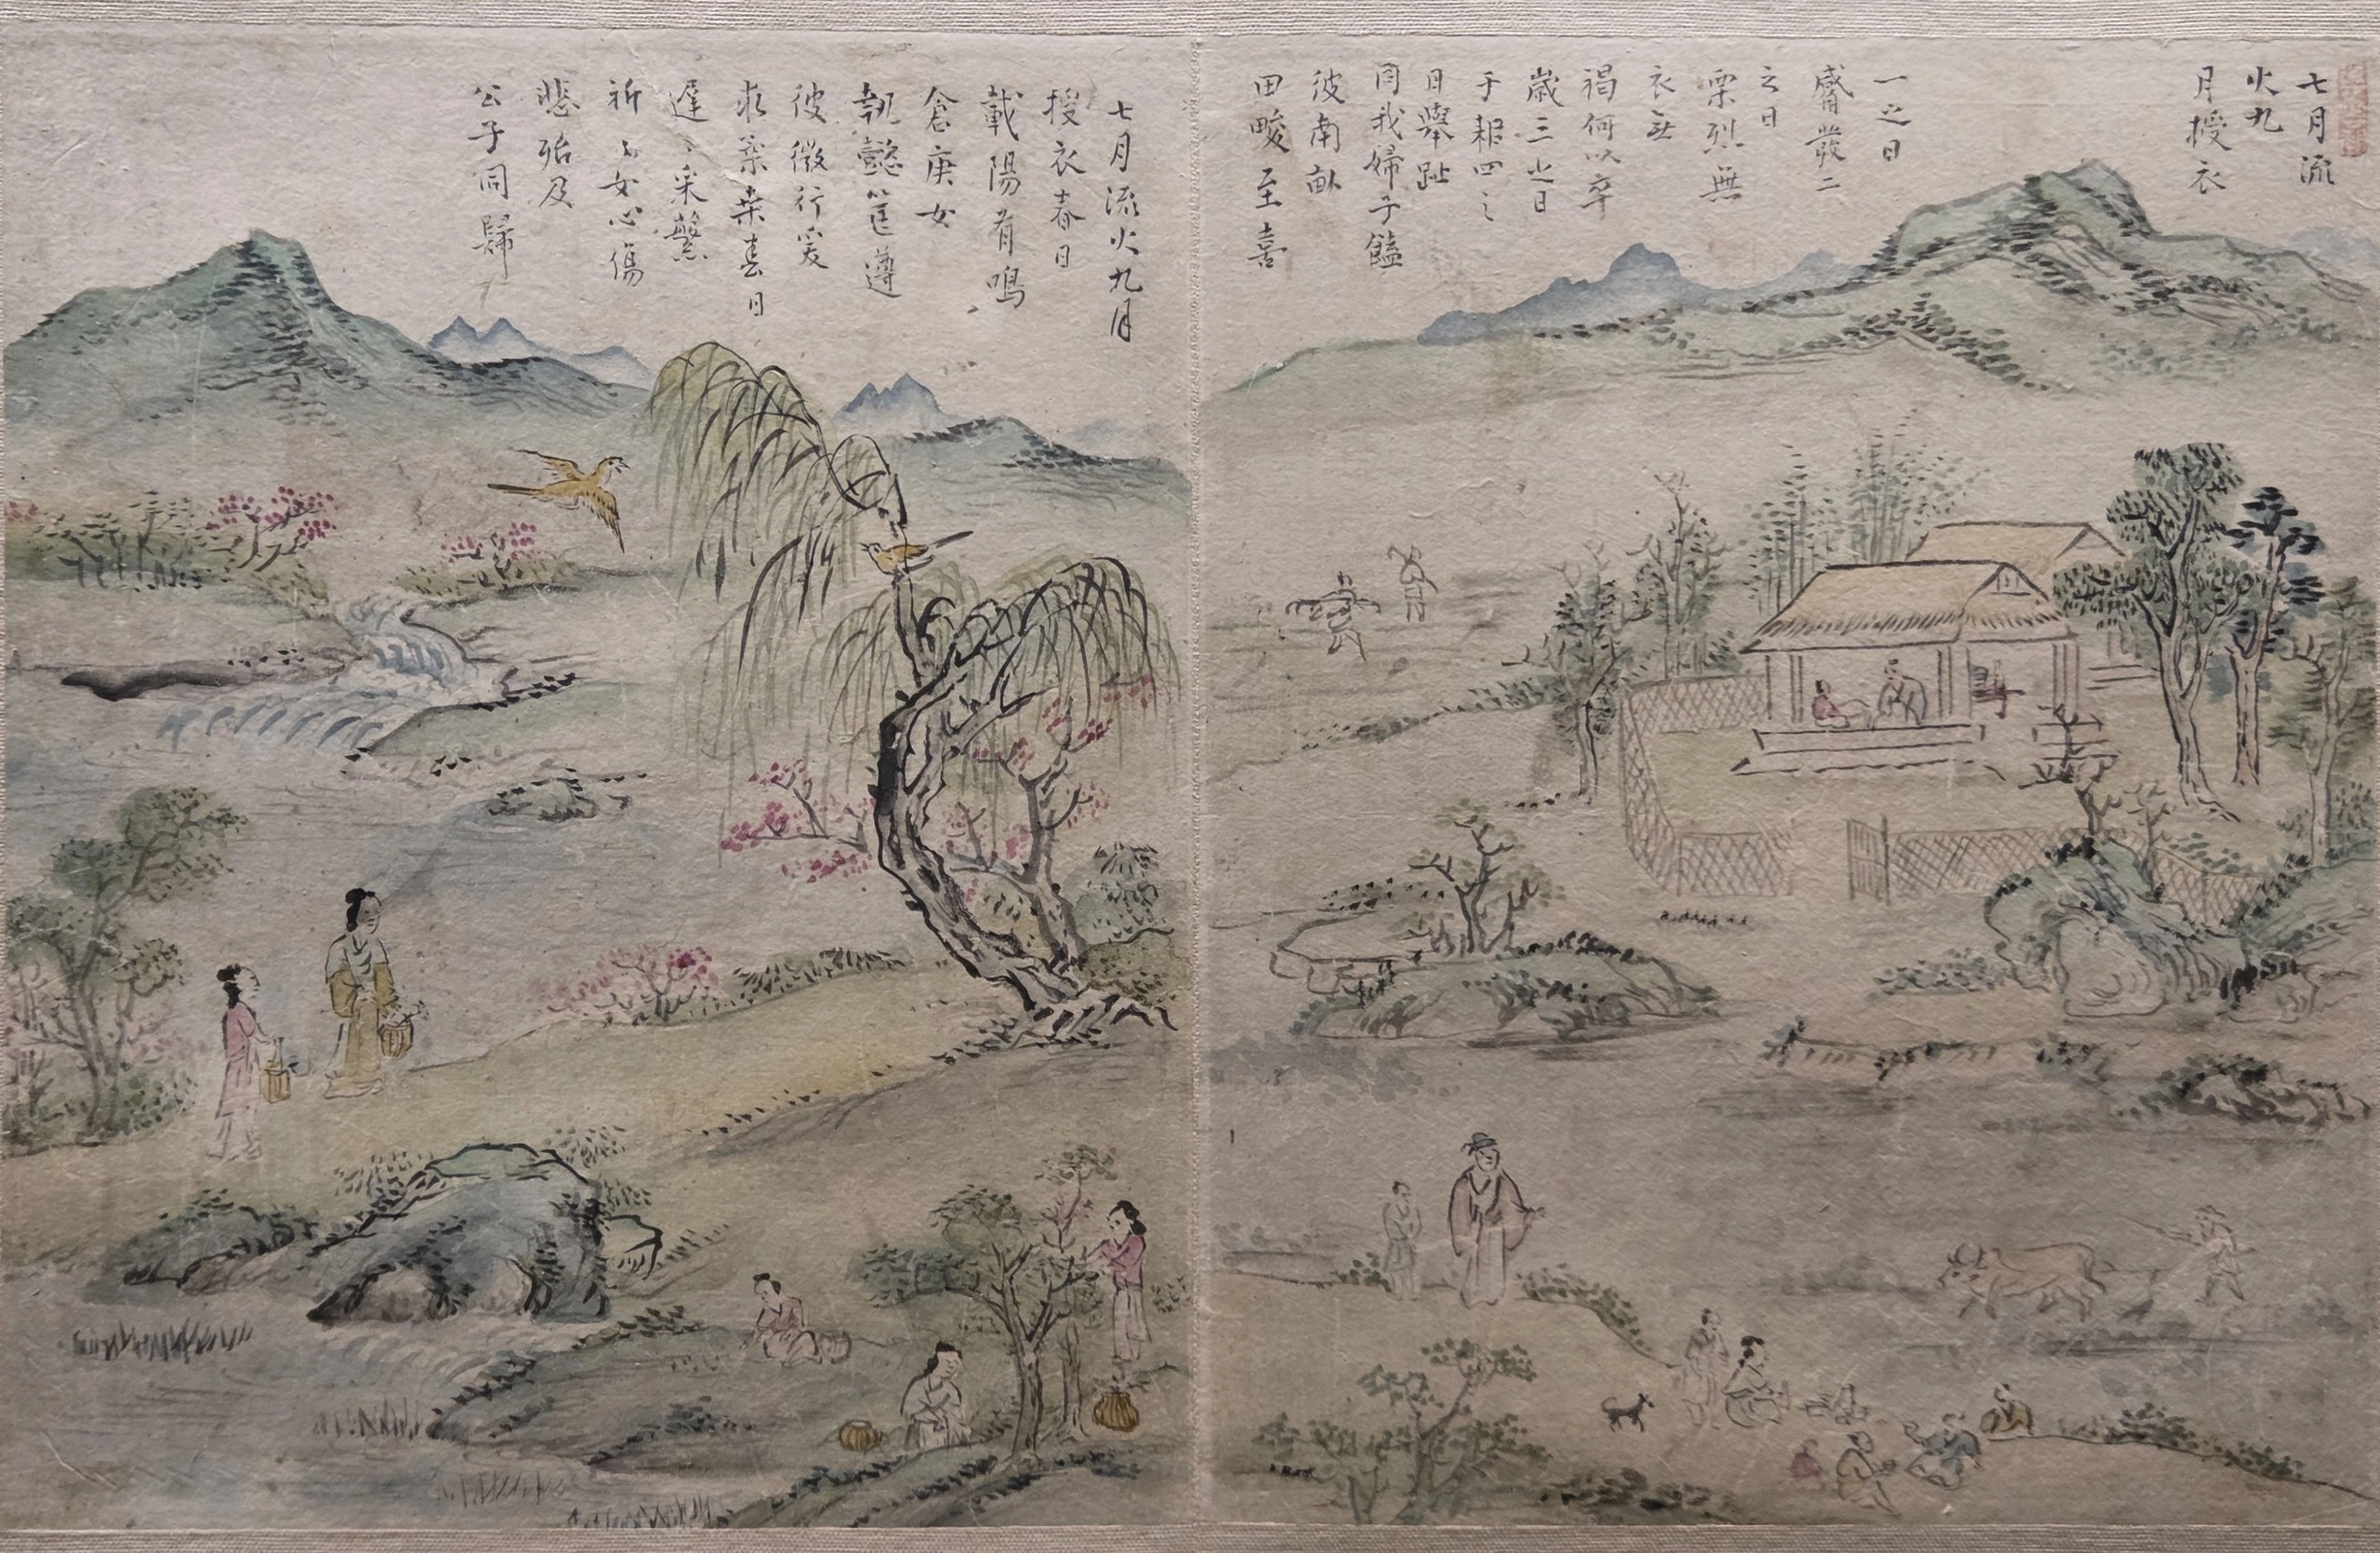 七月流
火九
月授衣
一之日
觱發二
之日
栗烈無
衣无
褐何以卒
歲三之日
于耜四之
日舉趾
同我婦子饁
彼南畝
田畯至喜
七月流火九月
授衣春日
載陽有鳴
倉庚女
執懿筐遵
彼微行爰
求柔桑春日
遲〻采蘩
祁〻女心傷
悲殆及
公子同歸